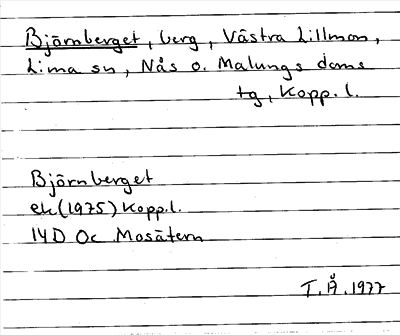 Björnberget, berg, Västra Lillmon,
Lima sn, Nås o. Malungs doms
tg, Kopp. l.
Björnberget
ek (1975) Kopp.l.
14D Oc Mosätern
T.Å. 1977